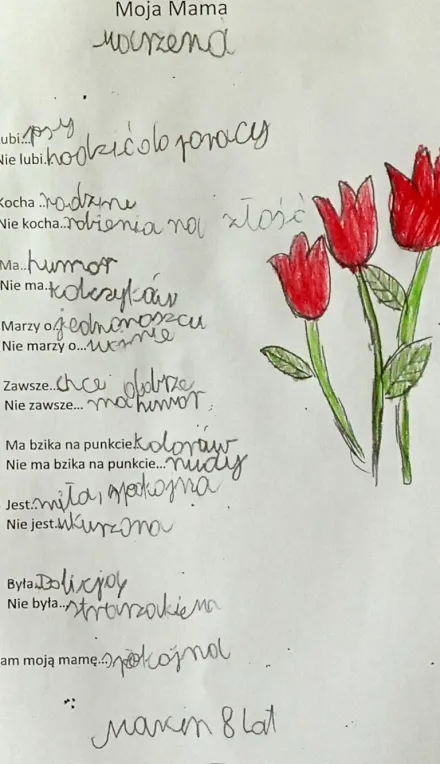 Moja Mama
Marzena
ubi...psy
Nie lubi.hodzić do pracy
Kocha..rodzine
Nie kocha..robienia na złość
Ma..humor
Nie ma.kolczyków
Marzy o
Nie marzy o...wannie
Zawsze..chce dobrze
Nie zawsze... ma humor
Ma bzika na punkcie.koloraw
Nie ma bzika na punkcie...nudy
Jest..miła, spokojna
Nie jest.wkurzona
Była.Policjoy
Nie była..strarzakiem
am moją mamę...spokojna
Marcin 8 lat